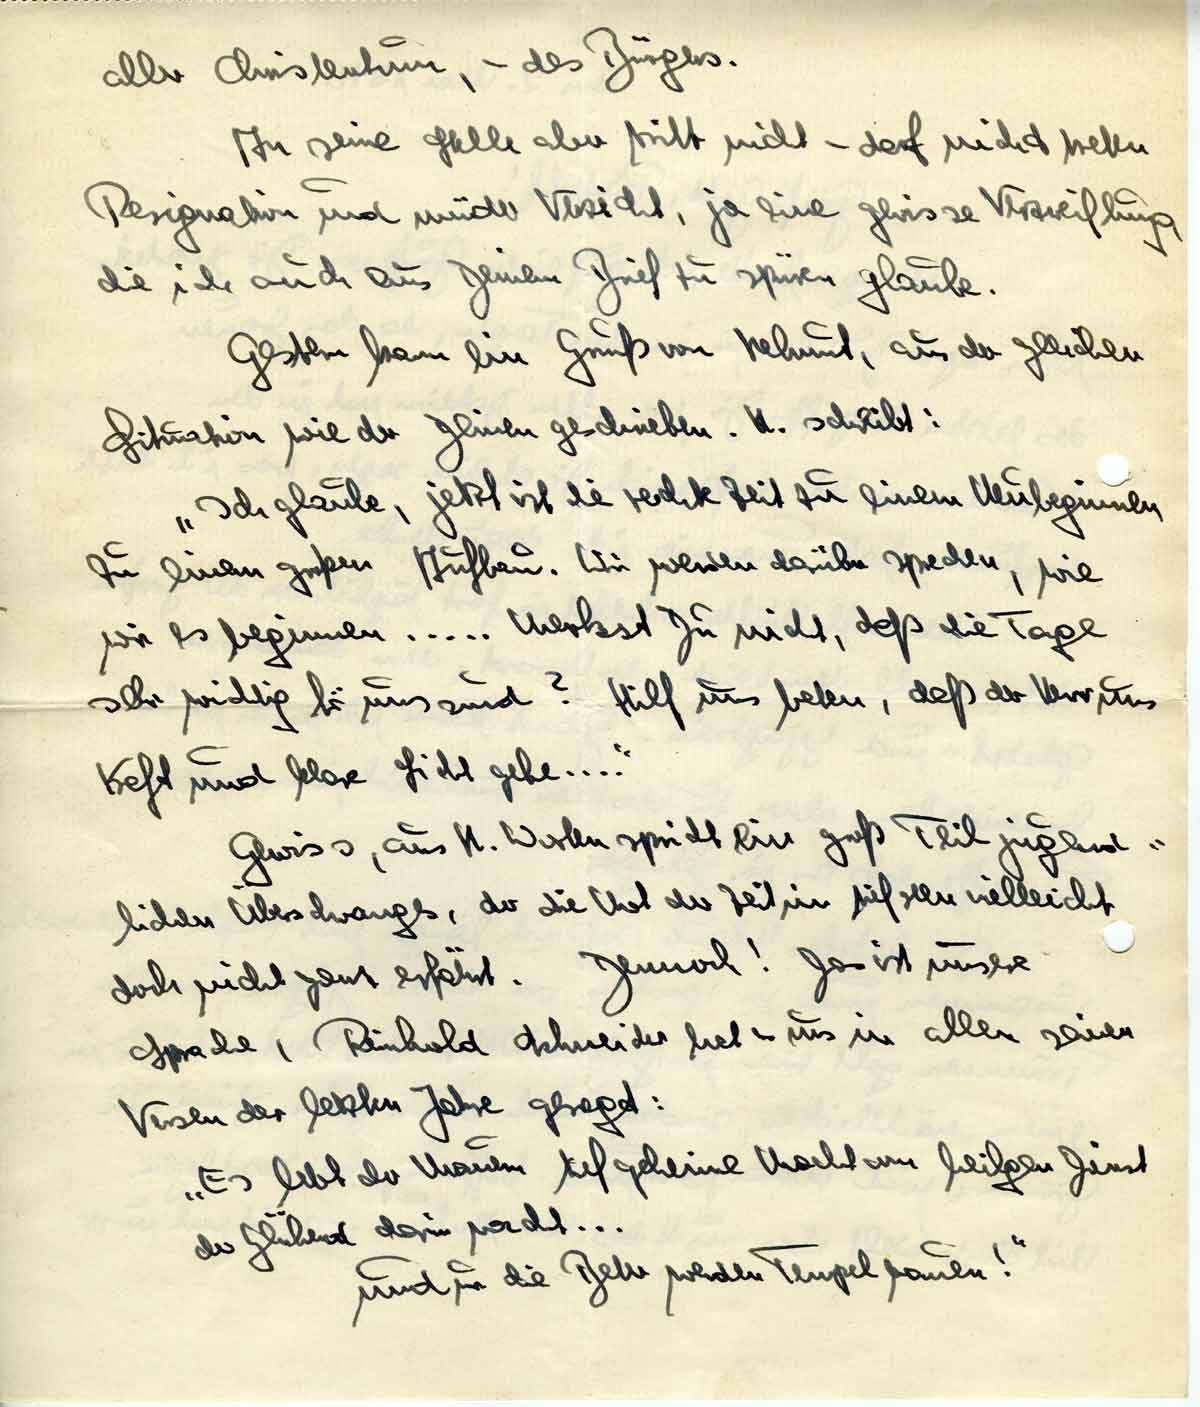 aller Christentum, – des Bürgers.
An seine Stelle aber tritt nicht – darf nicht treten
Resignation und müder Verzicht, ja eine gewisse Verzweiflung,
die ich auch aus Deinem Brief zu spüren glaube.
Gestern kam ein Gruß von Helmut, aus der gleichen
Situation wie der Deinen geschrieben. H. schreibt:
„Ich glaube, jetzt ist die rechte Zeit zu einem Neubeginnen
zu einem großen Aufbau. Wir werden darüber sprechen, wie
wir es beginnen ..... Merkst Du nicht, daß die Tage
sehr wichtig für uns sind? Hilf uns beten, daß der Herr uns
Kraft und klare Sicht gebe...."
Gewiss, aus H. Worten spricht ein groß Teil jugend-
lichen Überschwanges, der die Not der Zeit im tiefsten vielleicht
doch nicht ganz erfährt. Dennoch! Das ist unsere
Sprache, Reinhold Schneider hat es uns in allen seinen
Versen der letzten Jahre gesagt:
„Es lebt der Mauern tief geheime Macht vom heilgen Dienst
der glühend darin wacht...
und die Beter werden Tempel bauen!"